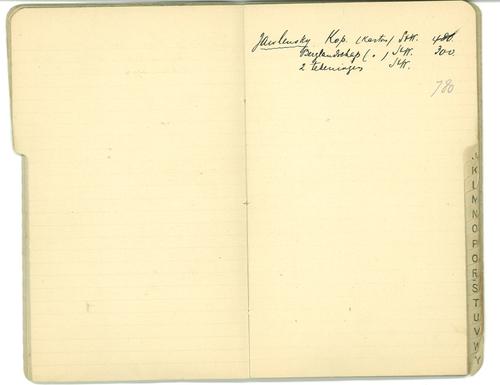 Jawlensky Kop. (Karton) StK. 480
Berglandschap ( " ) StK. 300
2 tekeningen StK.
780
J
K
L
M
N
O
P
Q
R
S
T
U
V
W
Y